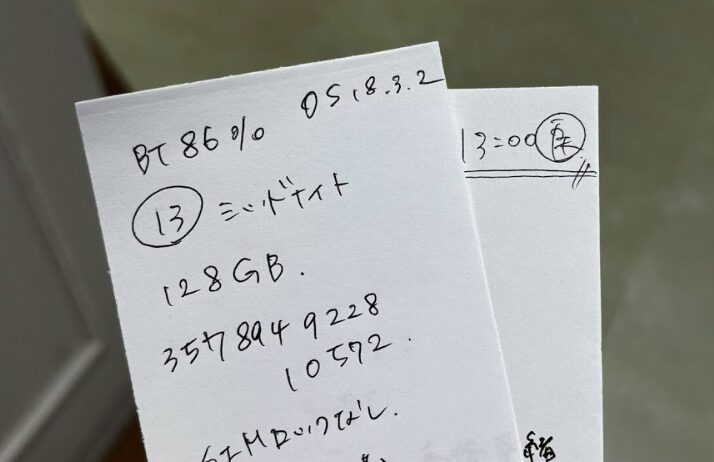 BT 86% OS18.3.2
⑬ ミッドナイト
128GB.
3578949228
10572.
SIMロックなし.
13:00